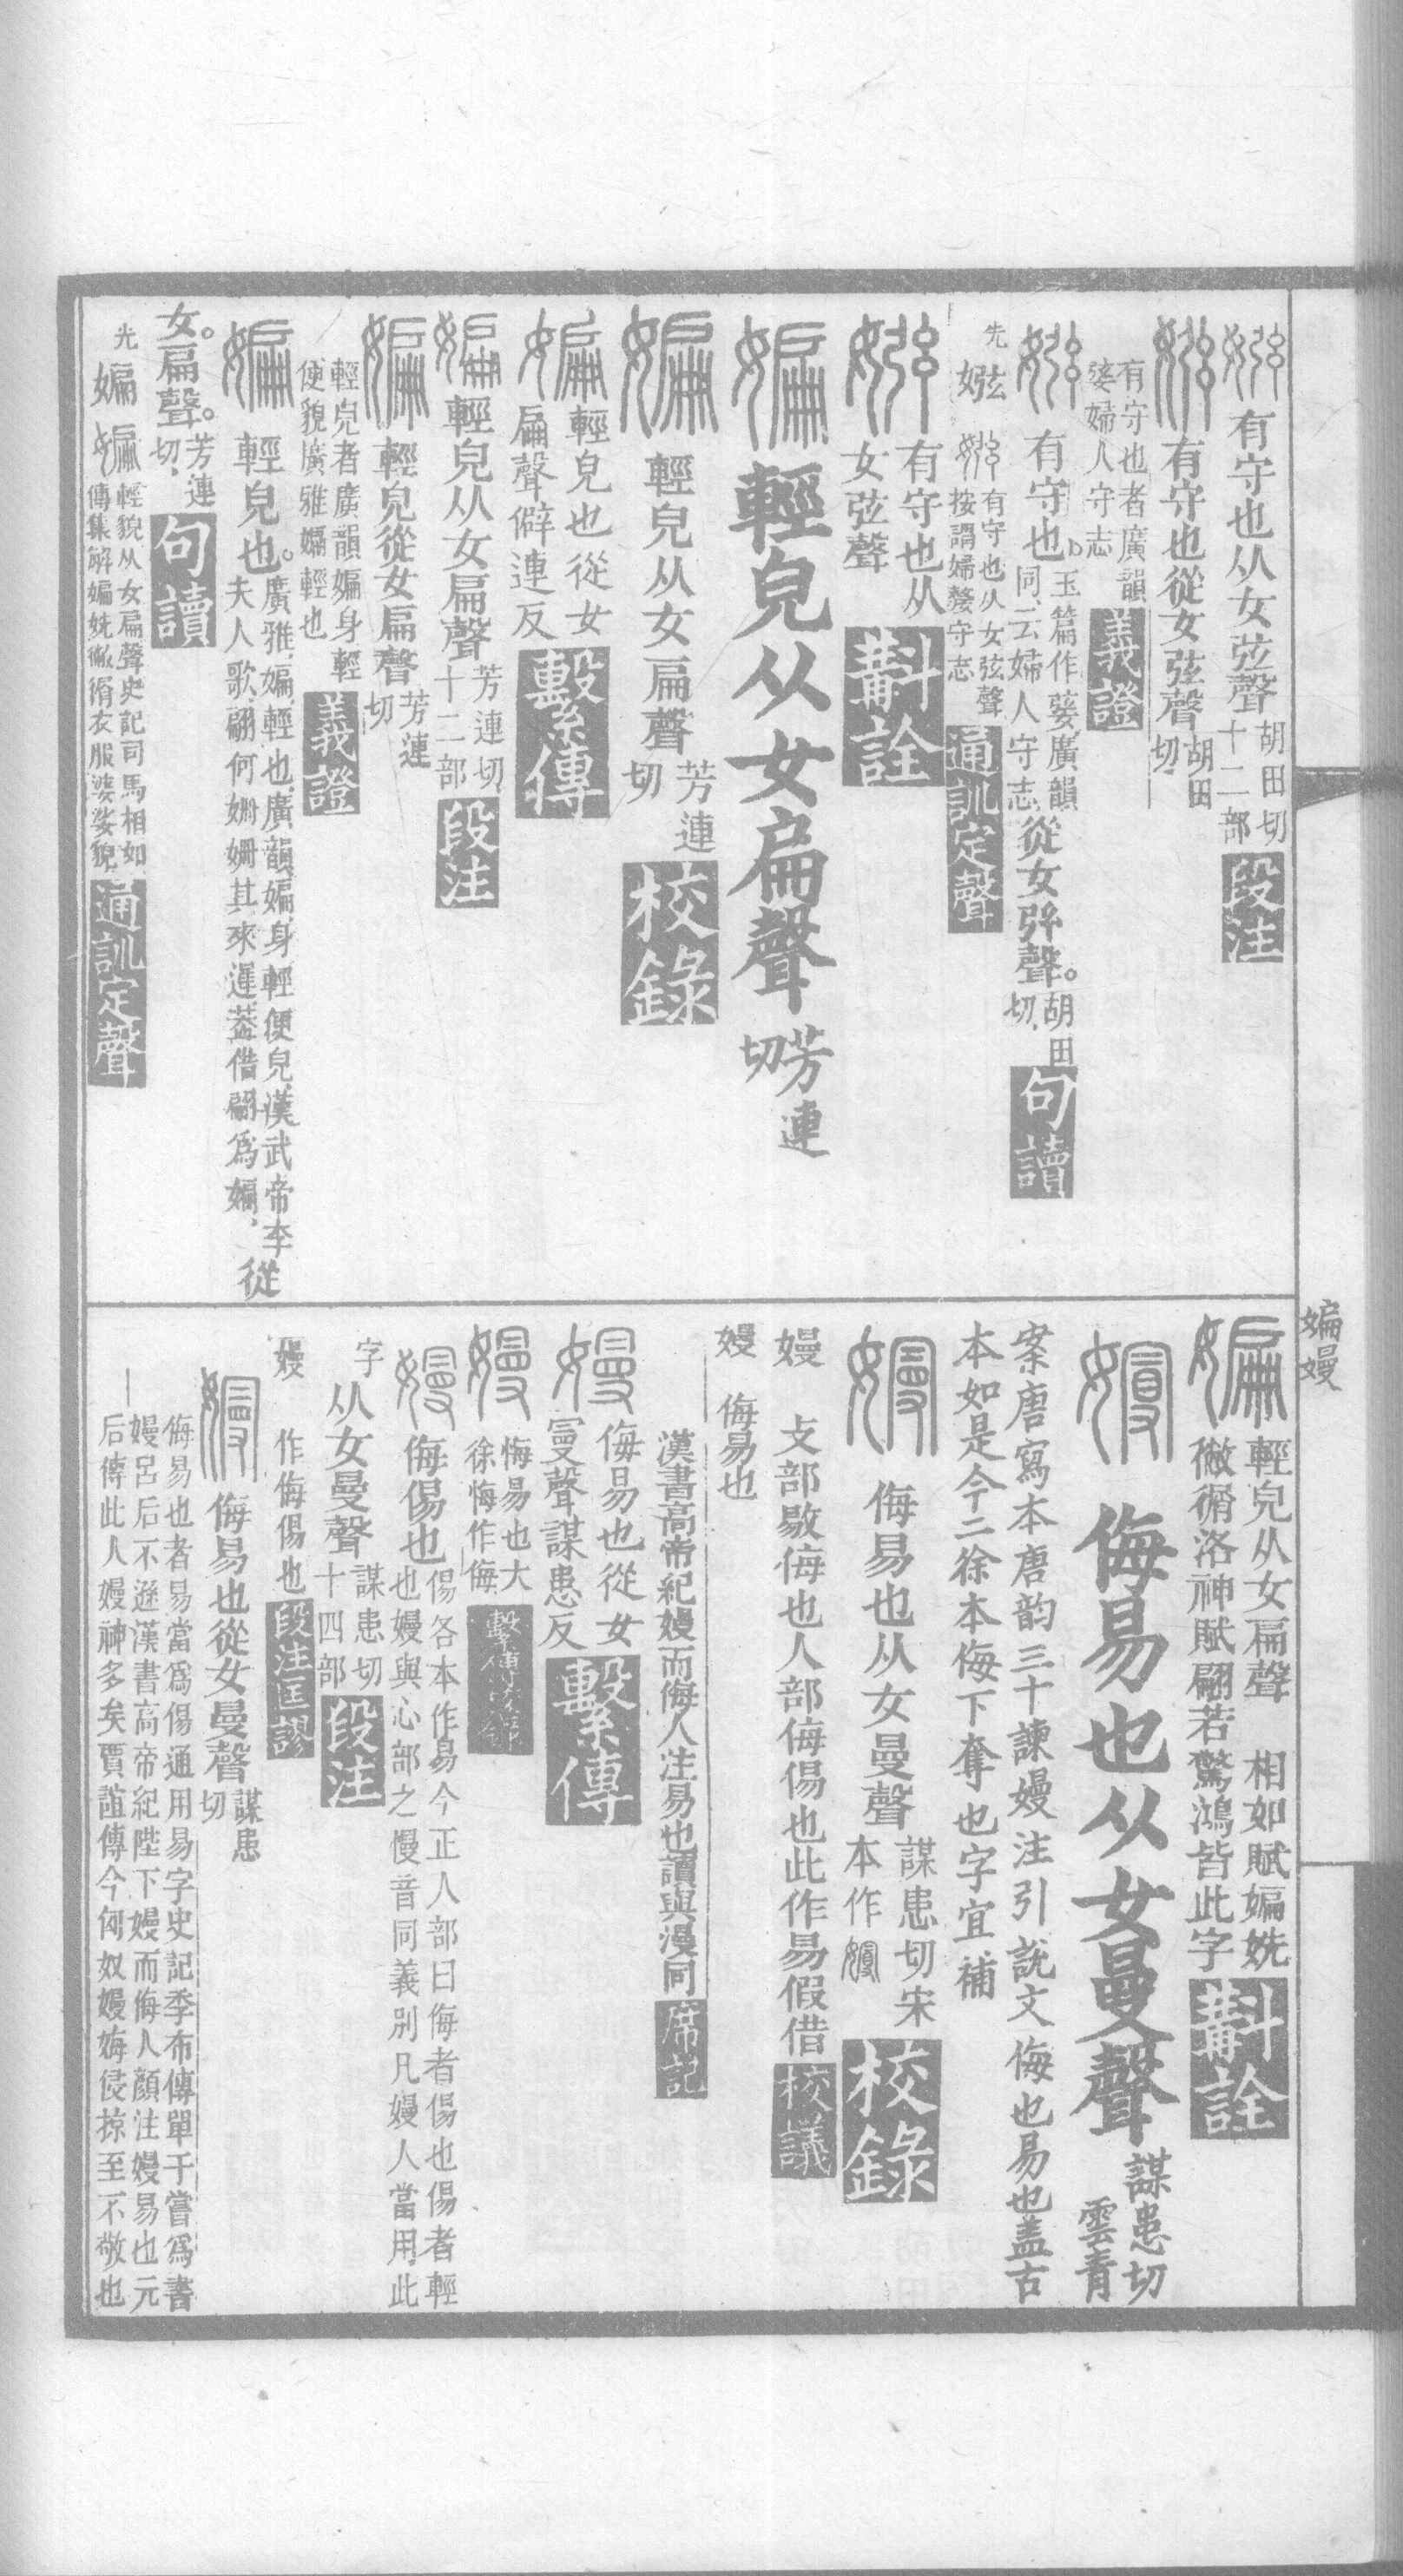 有守也从女弦聲胡田切十二部段注
有守也從女弦聲胡田切
有守也者廣韻
婆婦人守志義證
有守也玉篇作婆廣韻同云婦人守志從女弦聲胡田切句讀
先妶有守也从女弦聲按謂婦嫠守志通訓定聲
有守也从
女弦聲斠詮
輕皃从女扁聲芳連切
輕皃从女扁聲芳連切校錄
輕皃也從女
扁聲僻連反繫傳
輕皃从女扁聲芳連切十二部段注
輕皃從女扁聲芳連切
輕皃者廣韻媥身輕
便貌廣雅媥輕也義證
輕皃也。廣雅媥輕也廣韻媥身輕便皃漢武帝李夫人歌翩何姍姍其來遲葢借翩爲媥從
女。扁聲。芳連切句讀
先媥輕貌从女扁聲史記司馬相如傳集解媥姺徶㣯衣服婆娑貌通訓定聲
媥嫚
輕皃从女扁聲 相如賦媥姺
徶㣯洛神賦翩若驚鴻皆此字斠詮
侮易也从女曼聲謀患切雲青
案唐寫本唐韵三十諫嫚注引說文侮也易也盖古
本如是今二徐本侮下奪也字宜補
侮易也从女曼聲謀患切宋本作校錄
嫚 攴部敡侮也人部侮傷也此作易假借校議
嫚 侮易也
漢書高帝紀嫚而侮人注易也讀與漫同席記
侮易也從女
曼聲謀患反繫傳
侮易也大
徐悔作侮
侮傷也傷各本作易今正人部曰侮者傷也傷者輕也嫚與心部之慢音同義別凡嫚人當用此
字从女曼聲謀患切十四部段注
嫚 作侮傷也段注匡謬
侮易也從女曼聲謀患切
侮易也者易當爲傷通用易字史記季布傳單于嘗爲書
嫚呂后不遜漢書高帝紀陛下嫚而侮人顏注嫚易也元
后傳此人嫚神多矣賈誼傳今匈奴嫚娒侵掠至不敬也